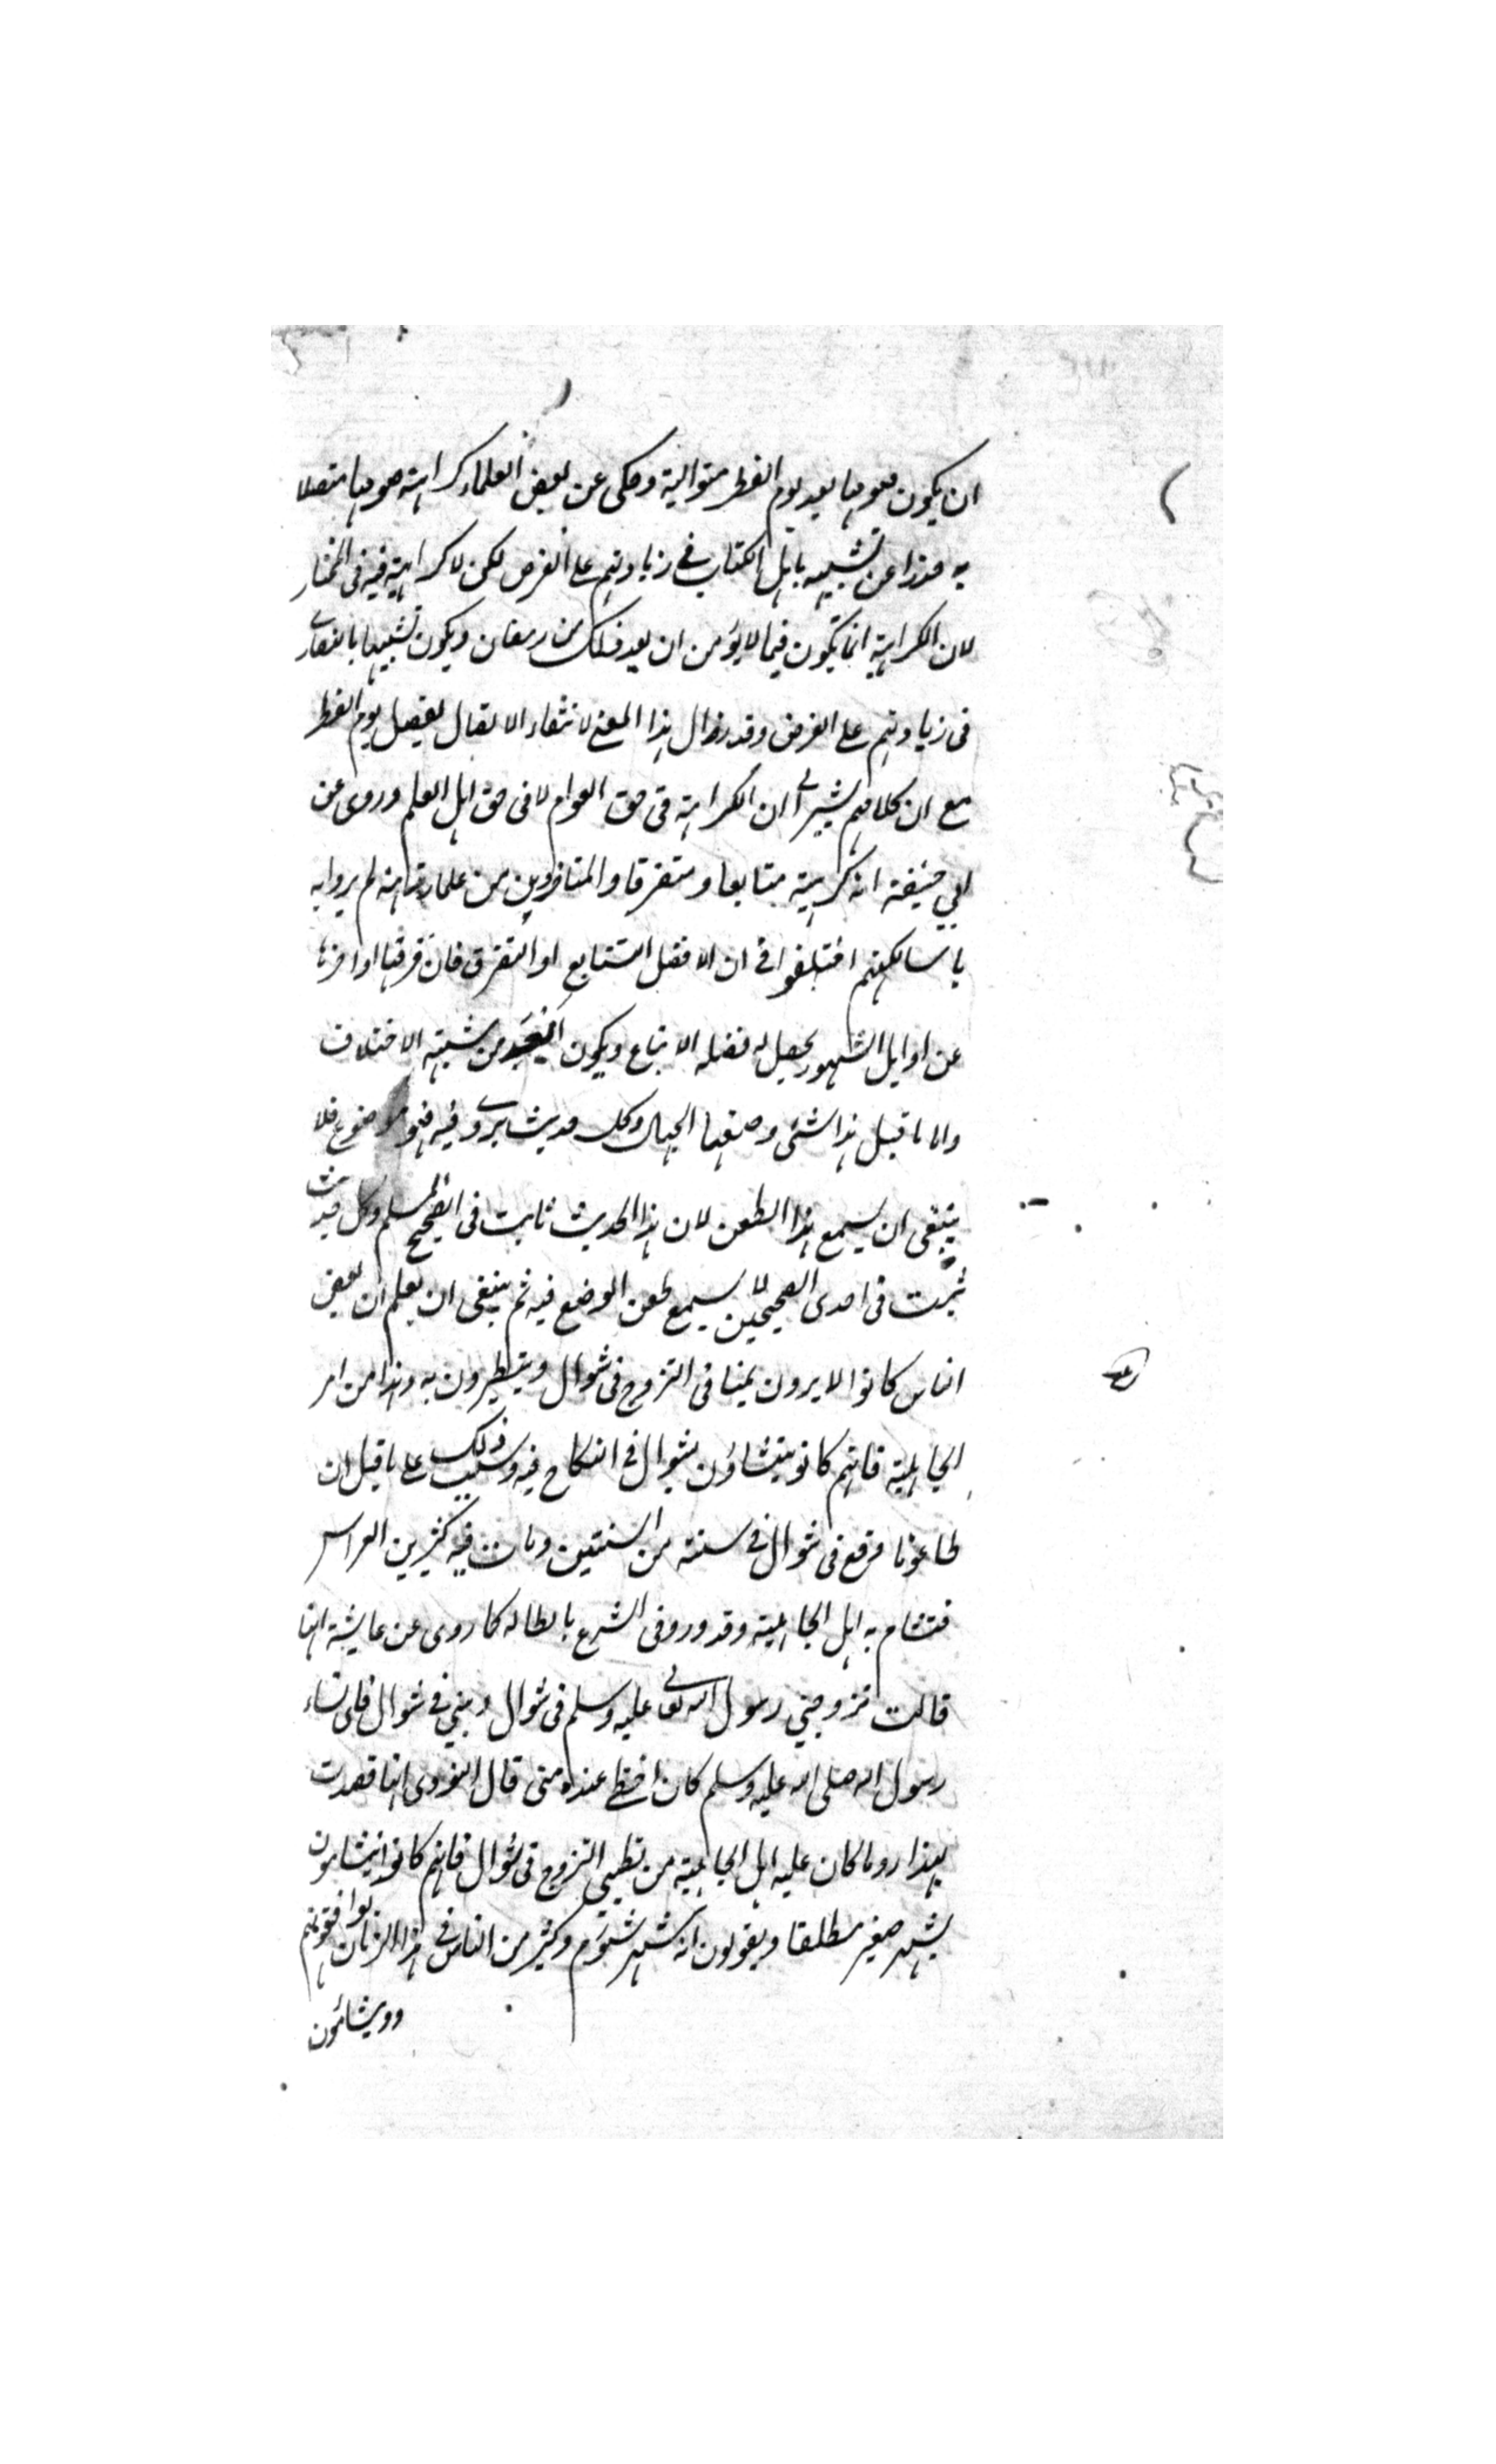 ان يكون صومها بعد يوم الفطر متوالية وحكى عن بعض العلماء كراهته صومها متصلا
به حذرا عن تشبيه باهل الكتاب في زيادتهم على الفرض لكن لا كراهية فيه في المختار
لان الكراهية انما تكون فيما لا يؤمن ان يعد ذلك من رمضان ويكون تشبيها بالنصارى
فى زيادتهم على الفرض وقد زال هذا المعنى لانتفاء الاتصال بفصل يوم الفطر
مع ان كلامهم يشير الى ان الكراهة فى حق العوام لا فى حق اهل العلم وروى عن
ابي حنيفة انه كرهيته متتابعا ومتفرقا والمتاخرين من علمائه لم يروا به
باسا لكنهم اختلفوا فى ان الافضل التتابع او التفرق فان فرقها او اخرها
عن اوايل الشهور يحصل له فضله الاتباع ويكون ابعد من شبهة الاختلاف
والا ما قيل هذا شئ وصفها الجهال وكل حديث يروى فيه فهو موضوع فلا
ينبغى ان يسمع هذا الطعن لان هذا الحديث ثابت فى الصحيح المسلم وكل حديث
ثبت فى احدى الصحيحين لا يسمع طعن الوضع فيه ثم ينبغى ان يعلم ان بعض
الناس كانوا لا يرون يمنا فى التزوج فى شوال ويتطيرون به وهذا من امر
الجاهلية فانهم كانو يتشاؤن بشوال فى النكاح فيه وسبب ذلك على ما قيل ان
طاعونا وقع فى شوال فى سنة من السنتين ومات فيه كثير من العرايس
فتشام به اهل الجاهلية وقد ورد فى الشرع بابطاله كما روى عن عايشة انها
قالت تزوجني رسول الله تعالى عليه وسلم فى شوال وبني في شوال فاى نساء
رسول الله صلى الله عليه وسلم كان احظى عنده منى قال النووى انها قصدت
بهذا رد ما كان عليه اهل الجاهلية من تطيير التزوج فى شوال فانهم كانوا يتشامون
بشهر صفير مطلقا ويقولون انه شهر شئوم وكثير من الناس فى هذا الزمان يوافقونهم
وويشائمون